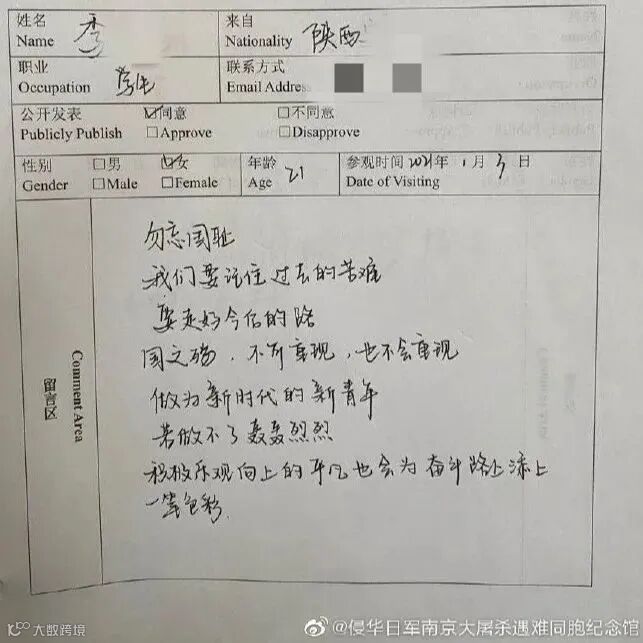 姓名 李 来自 陕西
Name Nationality
职业 学生 联系方式
Occupation Email Address
公开发表 ☑同意 □不同意
Publicly Publish □Approve □Disapprove
性别 □男 ☑女 年龄 21 参观时间 2021年 1月 3日
Gender □Male □Female Age Date of Visiting
留言区
Comment Area
勿忘国耻
我们要记住过去的苦难
要走好今后的路
国之殇,不可重现,也不会重现
做为新时代的新青年
若做不了轰轰烈烈
积极乐观向上的平凡也会为奋斗路上添上
一笔色彩.
大数跨境
@侵华日军南京大屠杀遇难同胞纪念馆